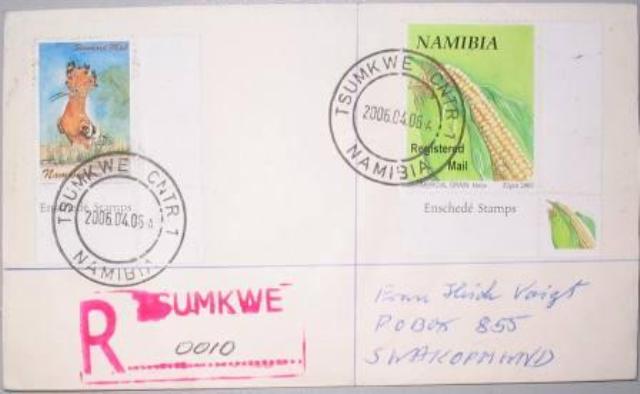 Standard Mail
Enschedé Stamps
TSUMKWE CNTR 1
2006.04.06
NAMIBIA
NAMIBIA
Registered
Mail
Enschedé Stamps
TSUMKWE CNTR 1
2006.04.06
NAMIBIA
R TSUMKWE
0010
Voigt
PO BOX 855
SWAKOPMUND